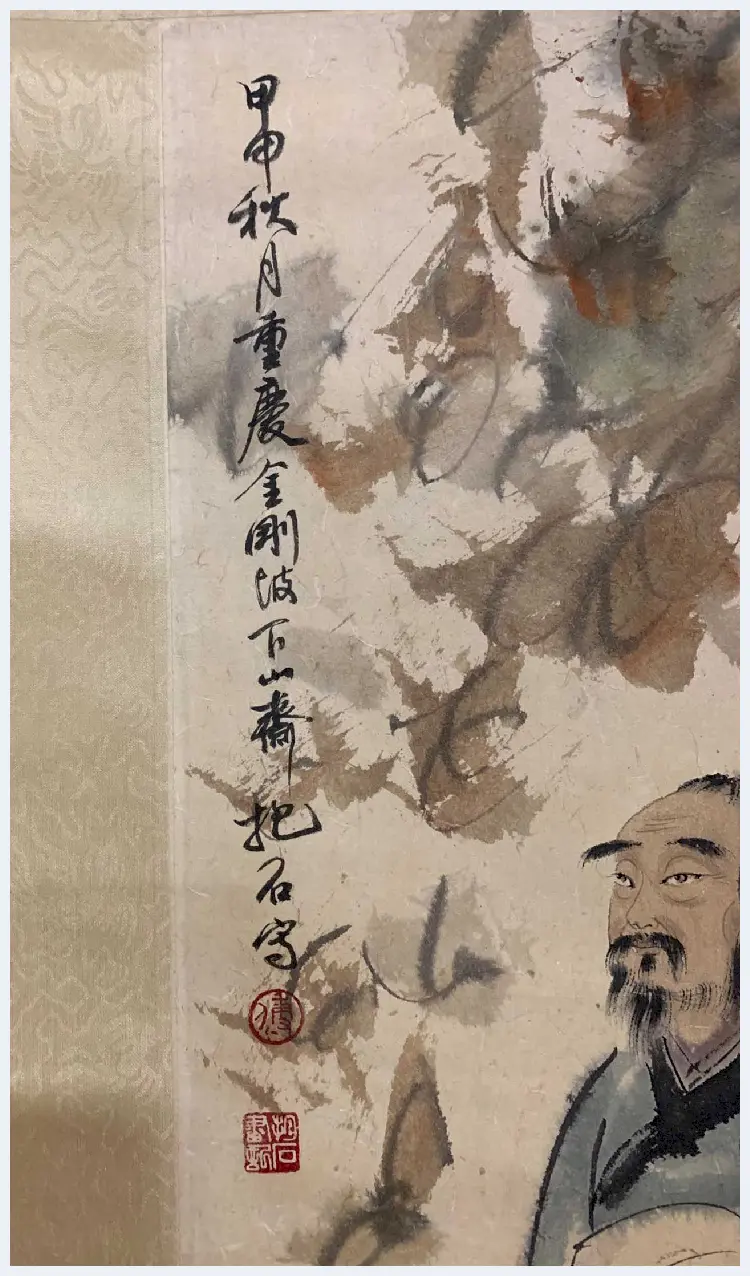 甲申秋月重慶金剛坡下山齋抱石寫
傅
抱石畫記